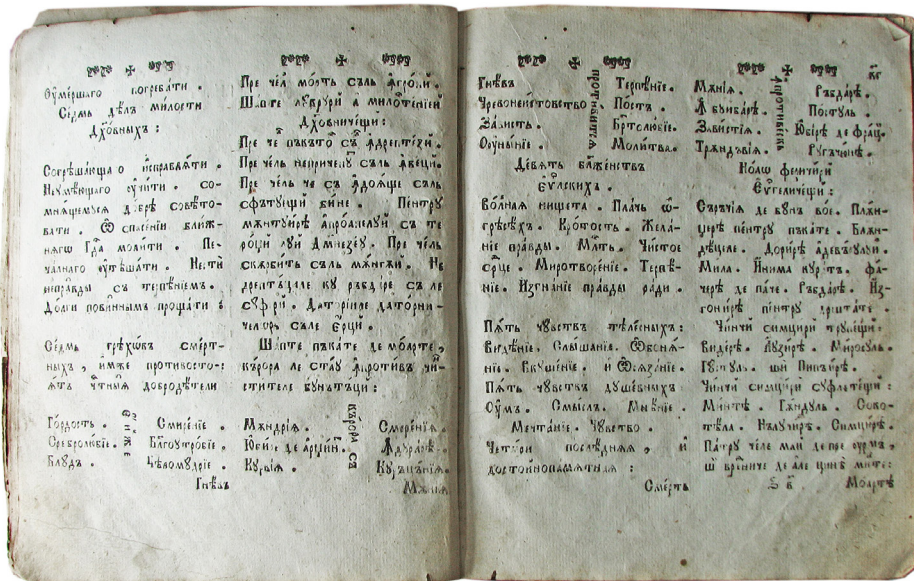 Оумершаго погребати .
Седмь дѣлъ милости
Дꙋховныхъ :
Согрѣшающа о исправлѧти .
Неꙋмѣющаго оучити . со-
мнѧщемꙋсѧ добрѣ совѣто-
вати . Ѿ спасеніи ближ-
нѧгѡ Гда молити . Пе-
чалнаго оутѣшати . Нести
неправды съ терпѣніемъ .
Долги повиннымъ прощати :
Седмь грѣхѡвъ смерт-
ныхъ , имже противосто-
ѧтъ чтныѧ добродѣтели
Гордость . Смиреніе .
Сребролюбіе . Благоꙋтробіе .
Блꙋдъ . Чѣвомꙋдріе .
Гнѣвъ
Пре чел морть съль ꙟгропи .
Шапте лꙋкрꙋри а милостенїей
Дꙋховничещи :
Пре че пъкатꙋ съ ꙟдрептези .
Пре чель непричепꙋ съль ꙟвеци .
Пре чель че съ ꙟдоѧще съль
сфътꙋещи бине . Пентрꙋ
мѫнтꙋирѣ апроапелꙋй съ те
роци лꙋй Дмнезеꙋ . Пре чель
скѫрбить съль мѫнгѫи . Не
дрептъциле кꙋ ръбдаре съ ле
сꙋфери . Даторіиле даторни-
челор съле Ерци .
Шапте пъкате де моарте ,
кърора ле стаꙋ ꙟпротивъ чин-
стителе бꙋнътъци :
Мѫндріѧ . Смереніѧ .
Юбире де арцинт . ꙟдꙋраре .
Кꙋрвіѧ . Кꙋръціѧ .
Мѫніѧ
къгрора съ
Гнѣвъ Терпѣніе .
Чревонеистовство Постъ .
Зависть . Братолюбіе .
Оуныніе . Молитва .
противитсѧ
Девѧть блженствъ
Еѵлскихъ .
Волнаѧ нищета . Плачь ѡ-
грѣсѣхъ . Кротость . Жела-
ніе правды . Млть . Чистое
срце . Миротвореніе . Терпѣ-
ніе . Изгнаніе правды ради .
Пѧть чꙋвствъ тѣлесныхъ :
Видѣніе . Слышаніе . Ѡбонѧ-
ніе . Вкꙋшеніе . и Ѡсѧзаніе .
Пѧть чꙋвствъ дꙋшевныхъ
Оумъ . Смыслъ . Мнѣніе .
Мечтаніе . Чꙋвство .
Четыри послѣднѧѧ , и
достойнопамѧтнаѧ :
Смерть
Мѫніѧ . Ръбдаре .
ꙟбꙋибаре . Постꙋль .
Завистіѧ . Юбирѣ де фраци .
Трѫндъвіѧ . Рꙋгъчюне .
ꙟпротивѣскъ
Ноаѡ феричири
Еѵгеличещи :
Съръчіѧ де бꙋнъ вое . Плѫн-
џерѣ пентрꙋ пъкате . Блѫн-
дѣциле . Дорирѣ адевърꙋлꙋй .
Мила . Инима кꙋратъ . фа-
черѣ де паче . Ръбдарѣ . Из-
гонирѣ пентрꙋ дрептате .
Чинчи симцири трꙋпещи :
Видерѣ . Аꙋзирѣ . Миросꙋль .
Гꙋстꙋль . ши Пипъирѣ .
Чинчи симцири сꙋфлетещи :
Минтѣ . Гѫндꙋль . Соко-
тѣла . Нълꙋчирѣ . Симцирѣ .
Патрꙋ челе май депре оурмъ ,
ши врѣдниче де але цинѣ минте :
Ѕ в̃
Моартѣ